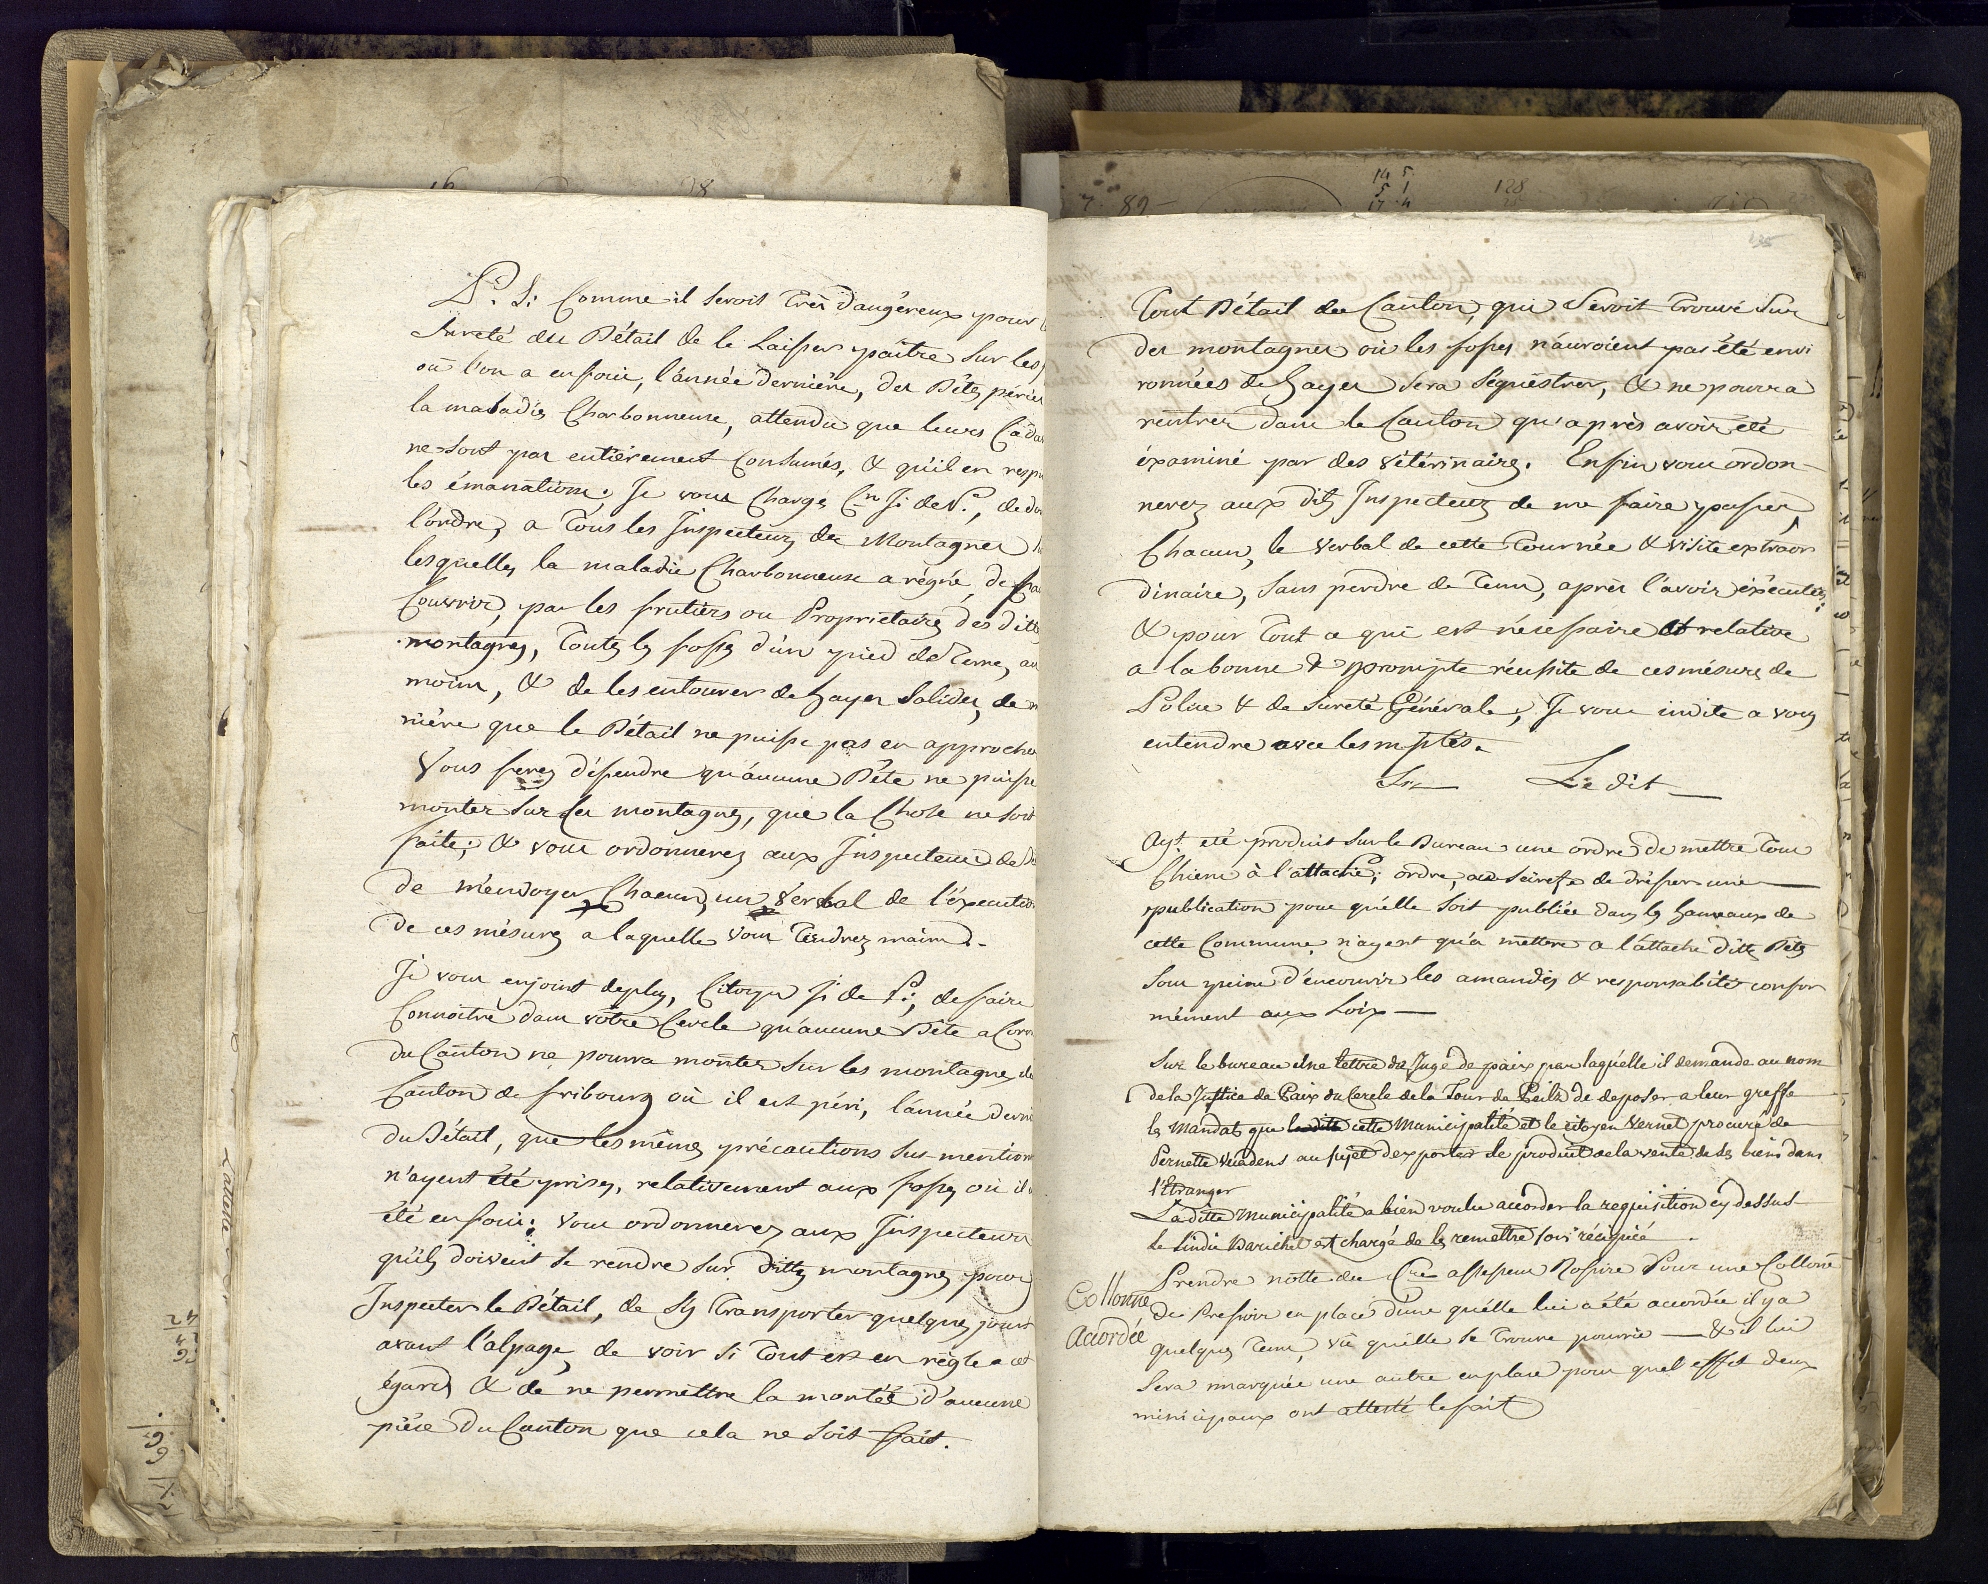 P. S. Comme il seroit très dangéreux pour l
Sureté du Bétail de le Laisser paître Sur les
où l'on a enfoui, l'année dernière, des Bêtes péries
la maladie Charbonneuse, attendu que leurs Cada
ne sont pas entièrement Consumés, & qu'il en respi
les émanations. Je vous Charge Cn J. de P., de do
l'ordre, a Tous les Inspecteurs des Montagnes
lesquelles la maladie Charbonneuse a régné, de fai
Couvrir, par les fruitiers ou Proprietaires des ditte
montagnes, Toutes les fosses d'un pied de Terre, au
moins, & de les entourer de hayes Solides, de m
nière que le Bétail ne puisse pas en approcher
Vous ferez défendre qu'aucune Bête ne puisse
monter Sur les montagnes, que la Chose ne soit
faite; & vous ordonnerez aux Inspecteurs de
de m'envoyer Chacun, un Verbal de l'éxecution
de ces mésures a laquelle vous Tiendrez main.
Je vous enjoint de plus, Citoyen J. de P.; de faire
Connoitre dans vôtre Cercle qu'aucune Bête a Corn
du Canton ne pourra monter Sur les montagnes du
Canton de fribourg où il est péri, l'année derni
du Bétail, que les mêmes précautions Sus-mention
n'ayent été prises, relativement aux fosses où il
été enfoui: Vous ordonnerez aux Inspecteurs
qu'ils doivent se rendre Sur dittes montagnes pour
Inspecter le Bétail, de s'y Transporter quelques jours
avant l'alpage, de voir Si Tout est en règle a cet
égard & de ne permettre la montée d'aucune
pièce du Canton que cela ne Soit fait.
Tout Bétail du Canton, qui Seroit Trouvé Sur
des montagnes où les fosses n'auroient pas été envi
ronnées de hayes Sera Séquestrer, & ne pourra
rentrer dans le Canton qu'après avoir été
éxaminé par des Vétérinaires. Enfin vous ordon-
nerez aux dits Inspecteurs de me faire passer,
Chacun, le Verbal de cette Tournée & visite extraor
dinaire, Sans perdre de Tems, après l'avoir éxécutée;
& pour Tout a qui est nécessaire et relative
a la bonne & prompte réussite de ces mésures de
Police & de Sureté Générale, Je vous invite a vous
entendre avec les mptés.
Le dit
Ayt. été produit Sur le Bureau une ordre de mettre Tous
Chiens à l'attache; ordre, au Sécrete de drésser une
publication pour qu'elle Soit publiée dans les hameaux de
cette Commune n'ayent qu'a mettre a l'attache dittes Bêtes
Sous peine d'encourir les amandes & responsabilité confor
mément aux Loix
Sur le bureau Une lettre du Juge de paix par laquelle il demande au nom
de la Justice de Paix du Cercle de la Tour de Peilz de deposer a leur greffe
les Mandats que cette Municipalité et le citoyen Vernet procuré de
Pernette au sujet d'exporter le produit de la vente de ses biens dans
l'Etranger
La ditte Municipalité a bien voulu accorder la requisition cy dessus
le Sindic Barichet est chargé de les remettre sous récipicé.
Collonne
Accordée
Prendre notte du Cne assesseur Rossire Pour une Collone
de Pressoir en place d'une qu'elle lui a été accordée il y a
quelques Tems, vu qu'elle se Trouve pourrie — & il lui
Sera marquée une autre en place pour quel effet deux
minicipaux ont attesté le fait